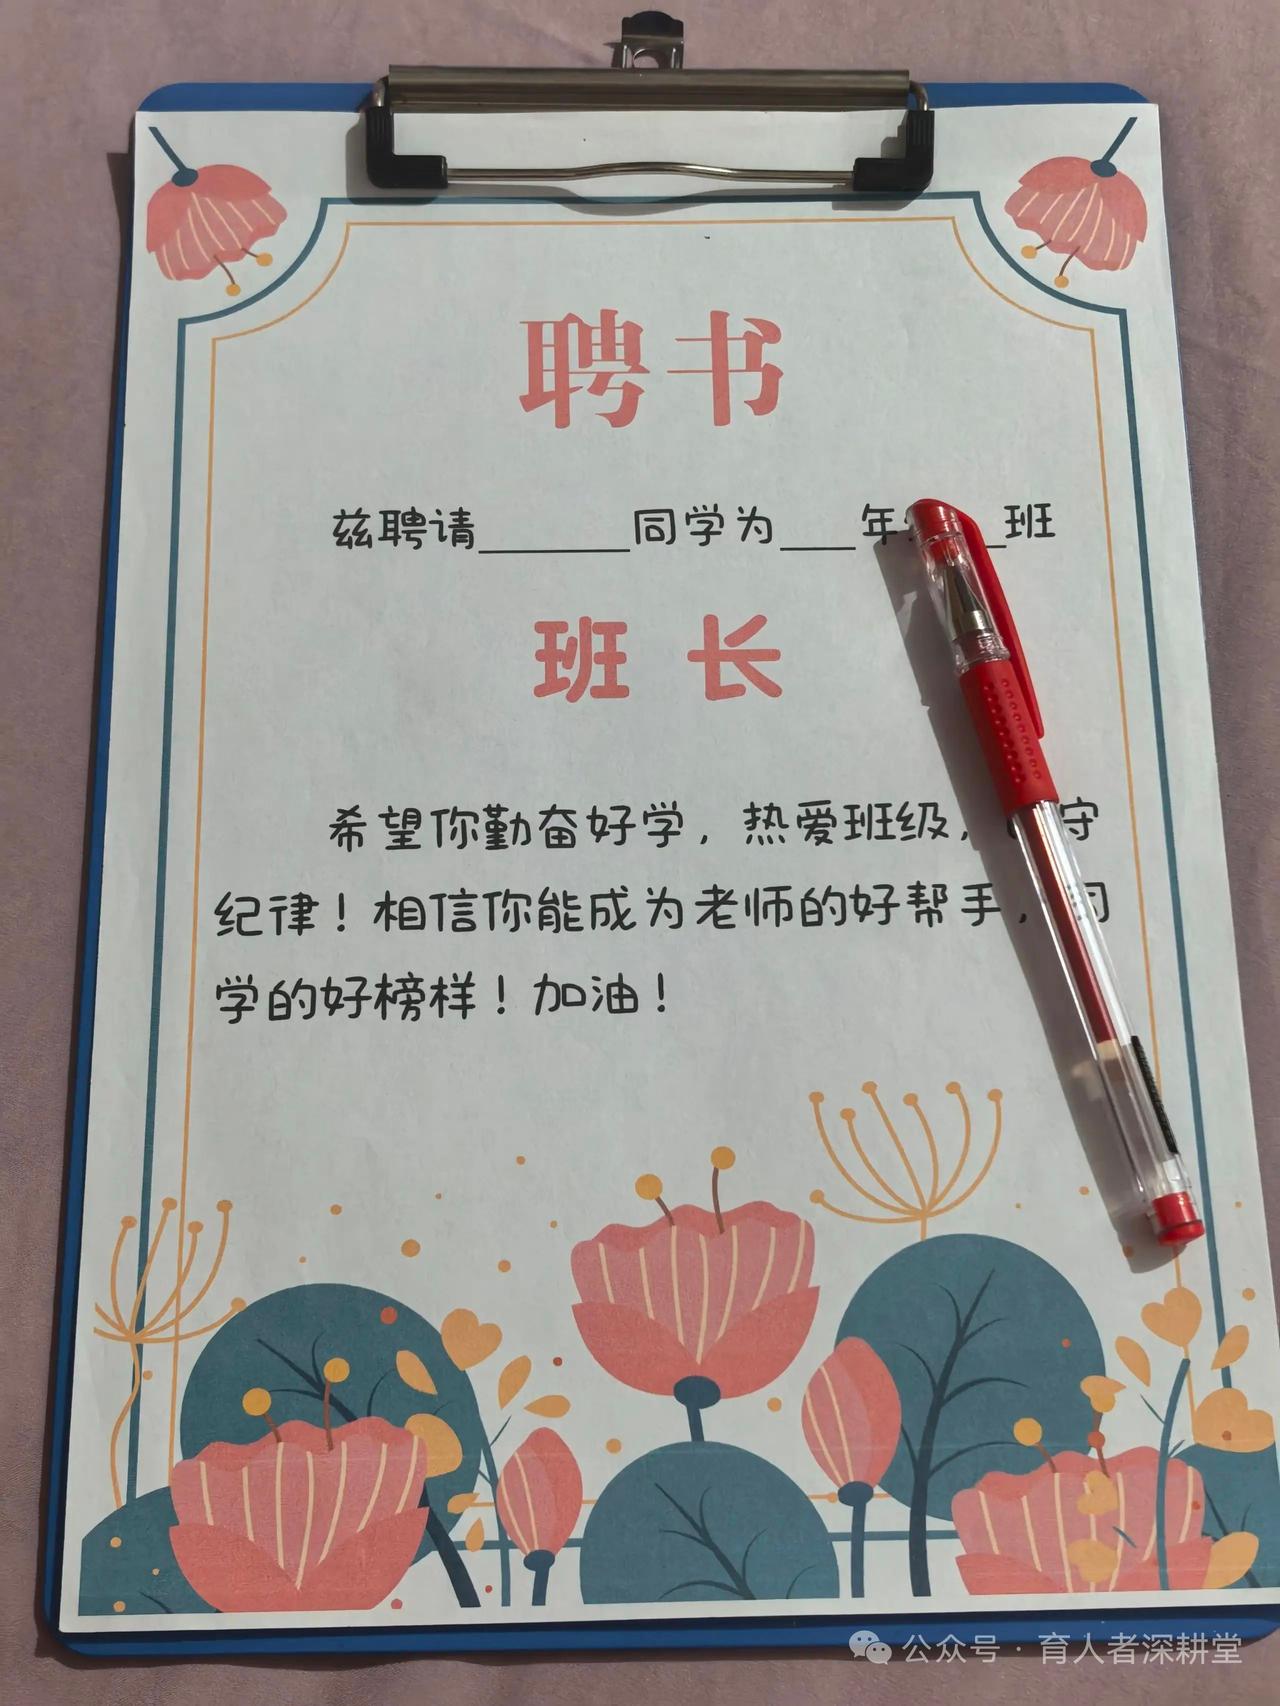 聘书
兹聘请______同学为___年 __班
班长
希望你勤奋好学，热爱班级， 守
纪律！相信你能成为老师的好帮手，同
学的好榜样！加油！
公众号·育人者深耕堂